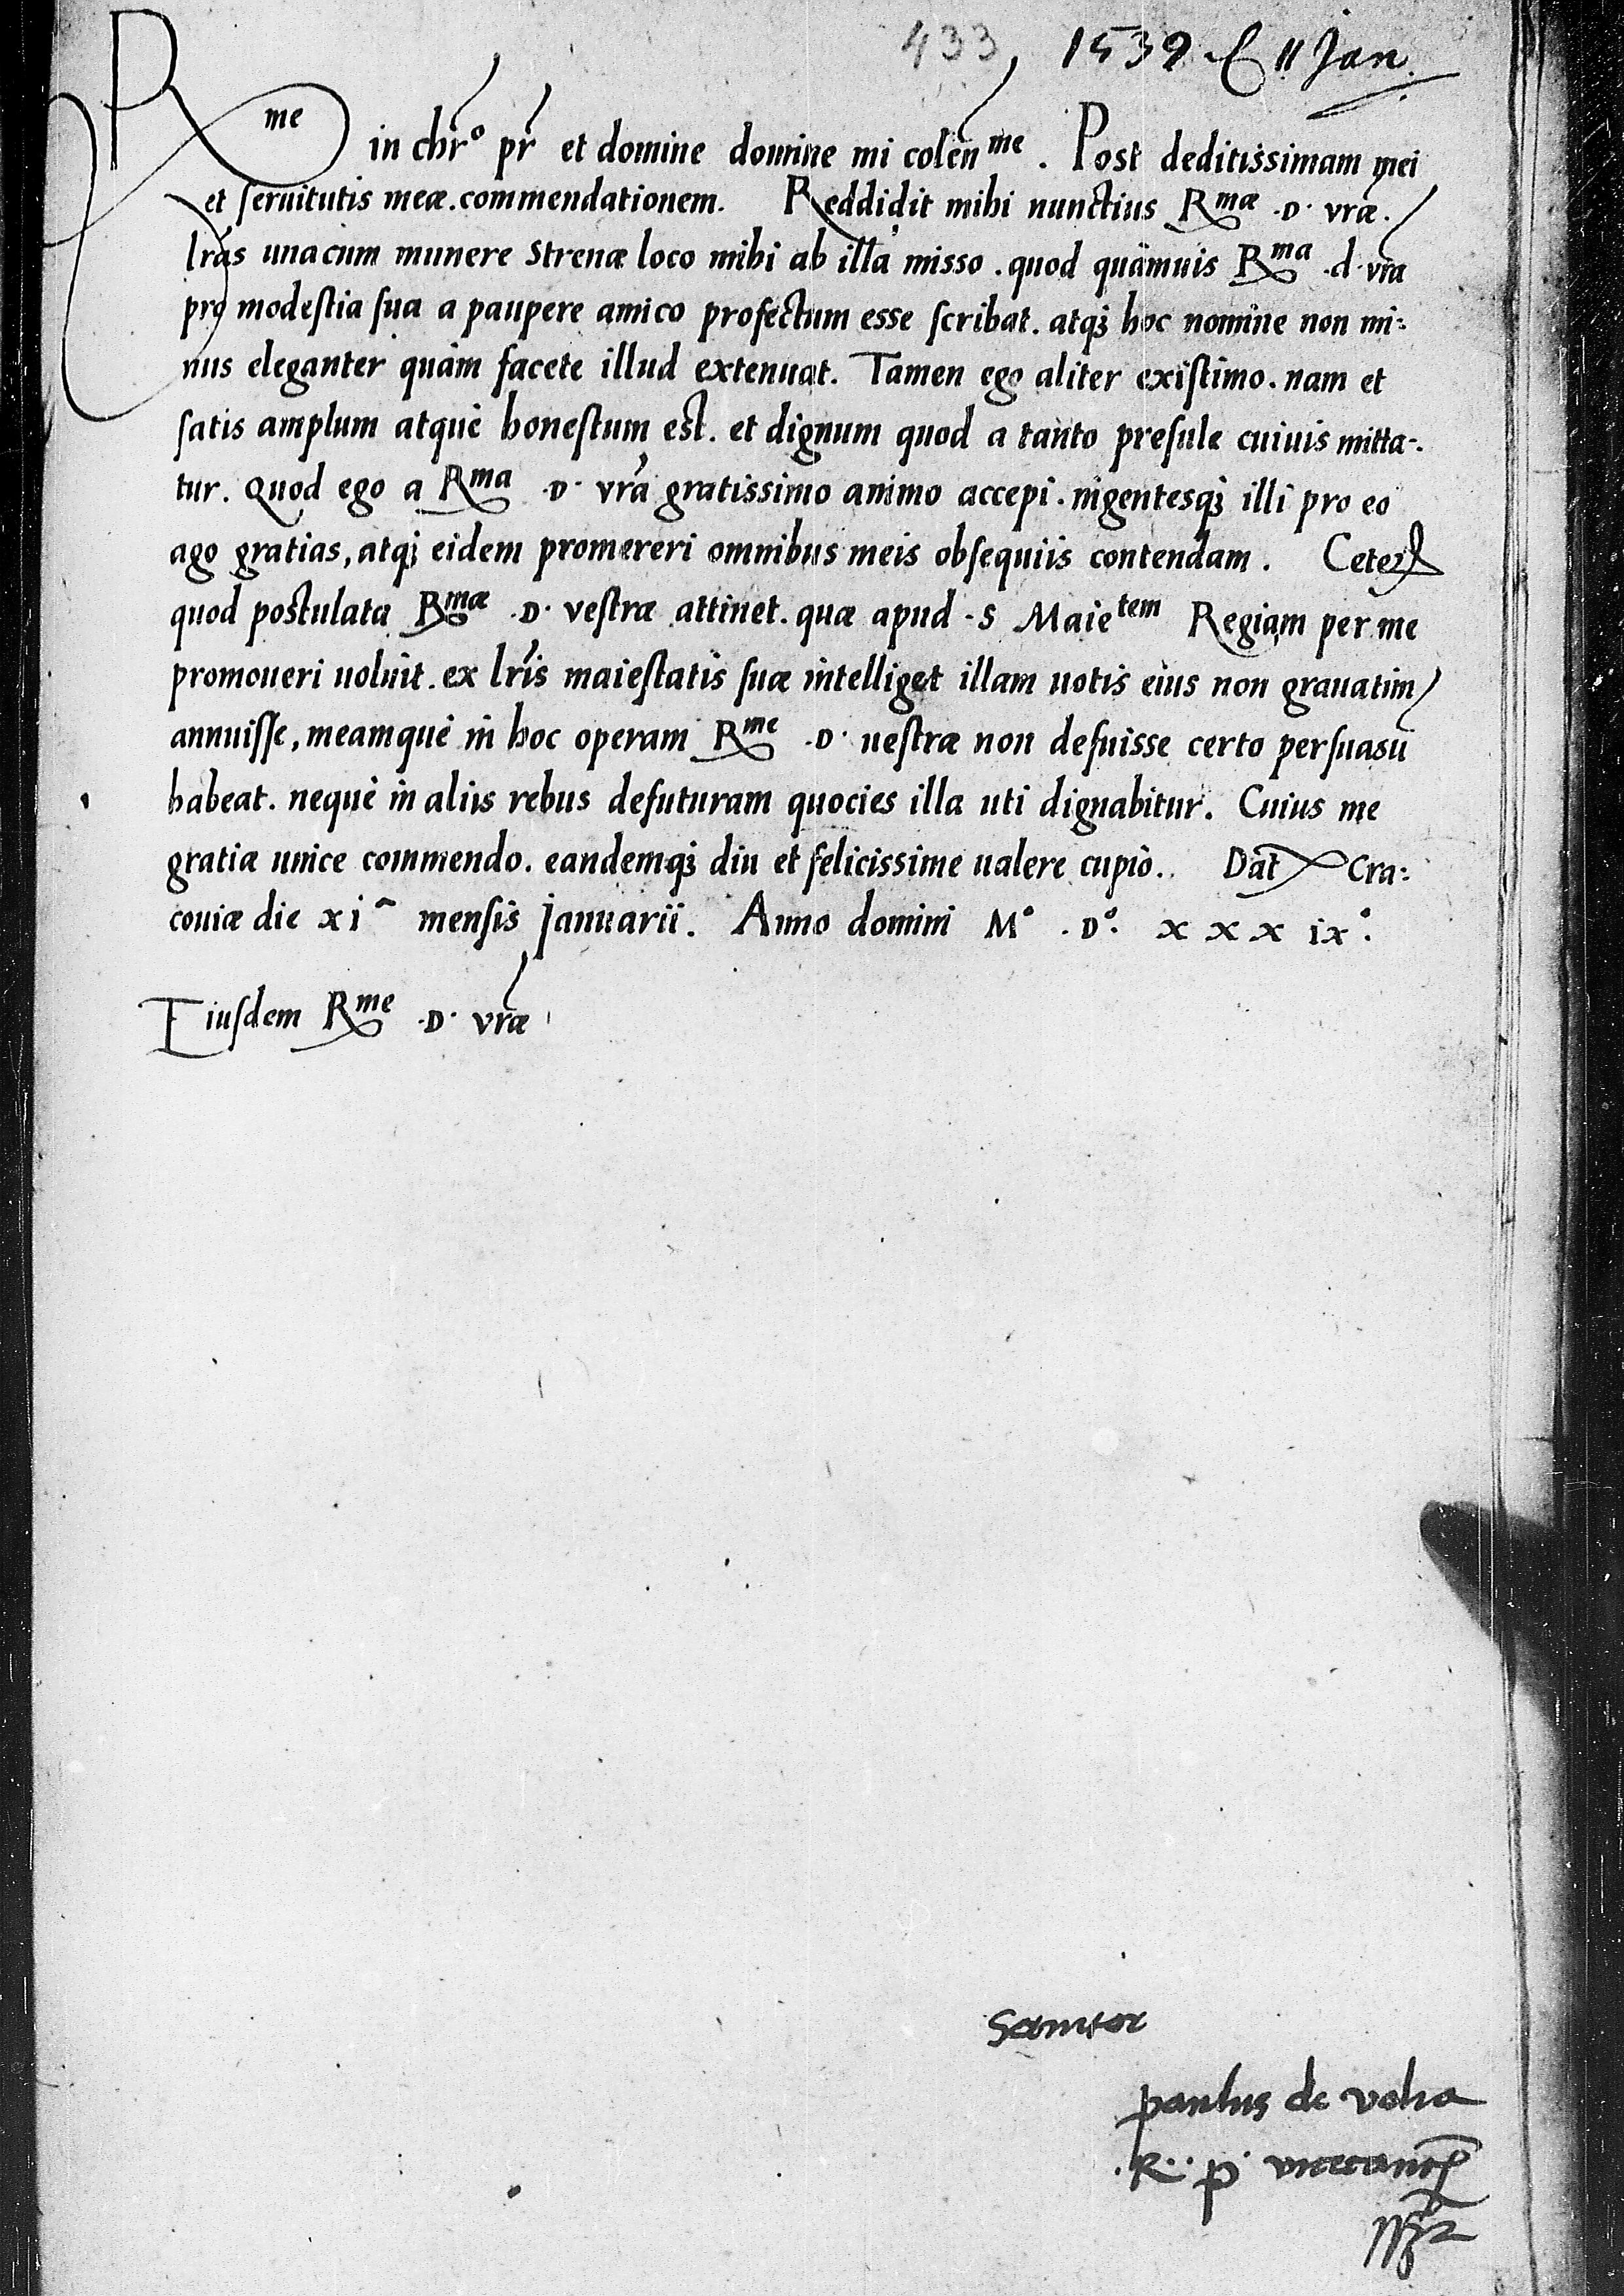 433 1539 11 Jan.
Rme in chr̃o pr̃ et domine domine mi colen̄me. Post deditissimam mei
et seruitutis meæ. commendationem. Reddidit mihi nunctius Rmæ .D. vræ.
lr̃as unacum munere Strenæ loco mihi ab illa misso. quod quãmuis Rma .d. vr̃a
pro modestia sua a paupere amico profectum esse scribat. atq₃ hoc nomine non mi:
nus eleganter quàm facete illud extenuat. Tamen ego aliter existimo. nam et
satis amplum atque honestum est. et dignum quod a tanto presule cuiuis mitta-
tur. Quod ego a Rma .D. vr̃a gratissimo animo accepi. nigentesq₃ illi pro eo
ago gratias, atq₃ eidem promereri omnibus meis obsequiis contendam. Ceterꝝ
quod postulata Rmæ .D. vestræ attinet. quæ apud .S Maietem Regiam per me
promoueri uoluit. ex lr̃is maiestatis suæ intelliget illam uotis eius non grauatim
annuisse, meamque in hoc operam Rme .D. uestræ non defuisse certo persuasũ
habeat. neque in aliis rebus defuturam quocies illa uti dignabitur. Cuius me
gratiæ unice commendo. eandemq₃ diu et felicissime ualere cupio.. Dat̃ Cra:
couiæ die xi^ mensis Januarii. Anno domini M° .D°. xxxix°.
Eiusdem Rme .D. vr̃æ
Seruitor
paulus de volia
.R.. p. vicecancẽ